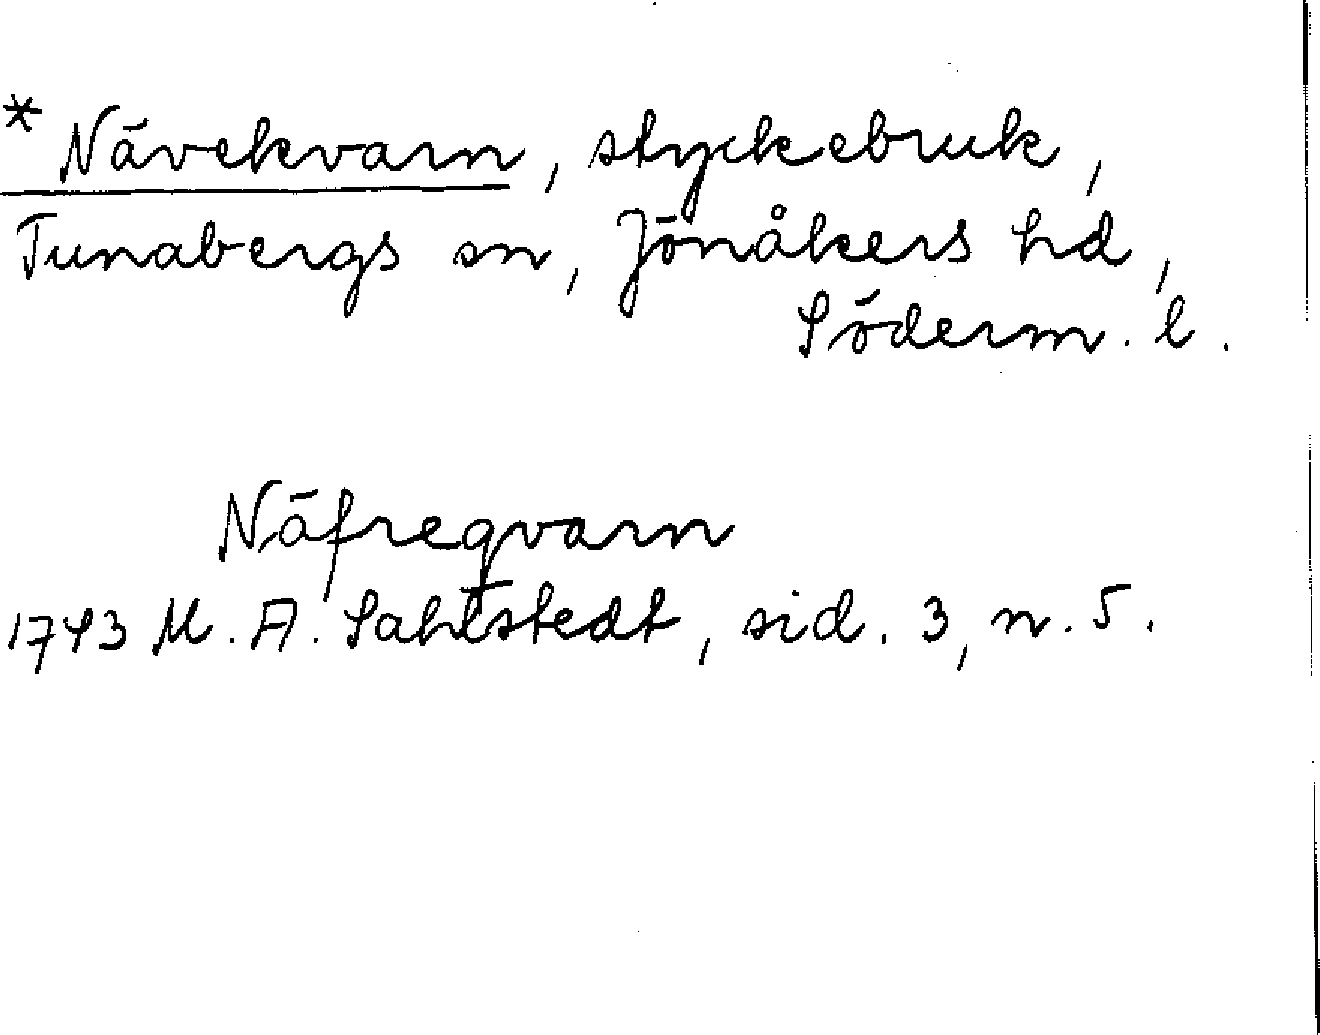 * Nävekvarn, styckebruk,
Tunabergs sn, Jönåkers hd,
Söderm. l.
Näfreqvarn
1743 M. A. Sahlstedt, sid. 3, n. 5.